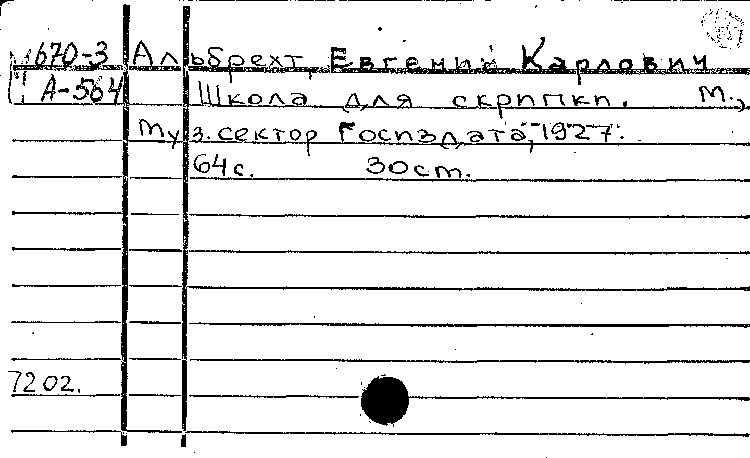 М670-3 Альбрехт, Евгений Карлович
А-564 Школа для скрипки. М.,
Муз. сектор Госиздата, 1927.
64с. 30ст.
7202.